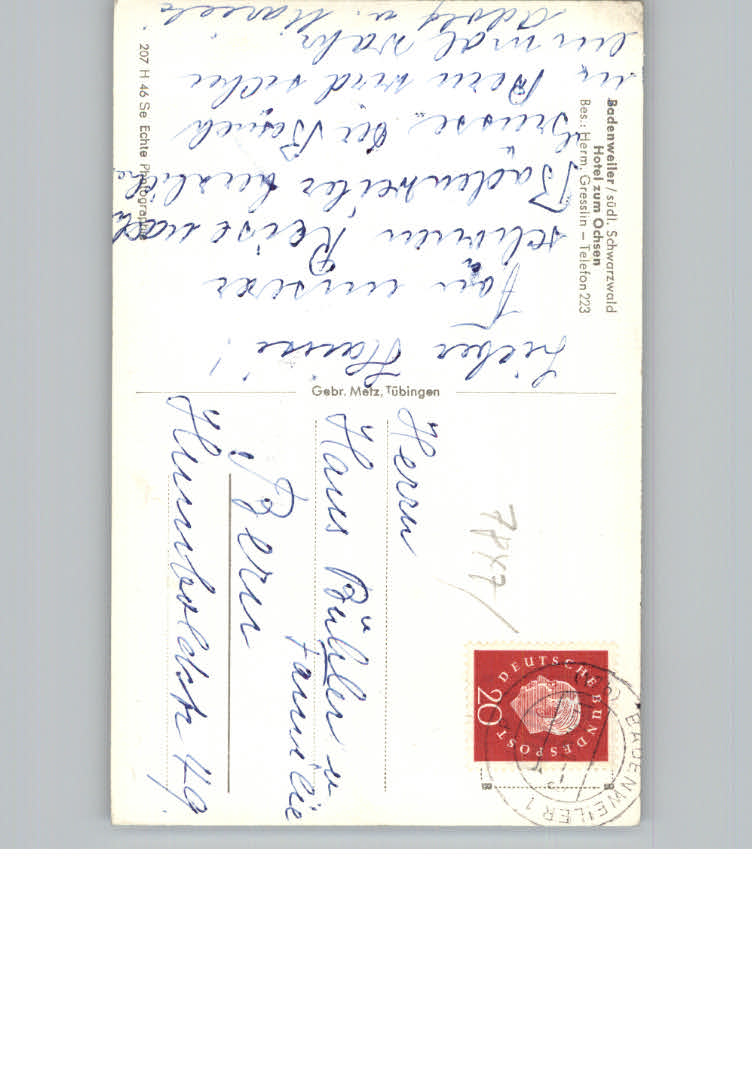 Badenweiler / südl. Schwarzwald
Hotel zum Ochsen
Bes.: Herm. Gresslin – Telefon 223
Lieber Hans!
Von unserer
schönen Reise nach
Badenweiler herzliche
Grüsse. Der Besuch
in Bern wird sicher
einmal wahr.
Adolf u.
207 H 46 Se Echte Photographie
Gebr. Metz, Tübingen
7847/
Herrn
Hans Bühler u
Familie
Bern
Humboldstr 49
DEUTSCHE BUNDESPOST
20
BADENWEILER 1